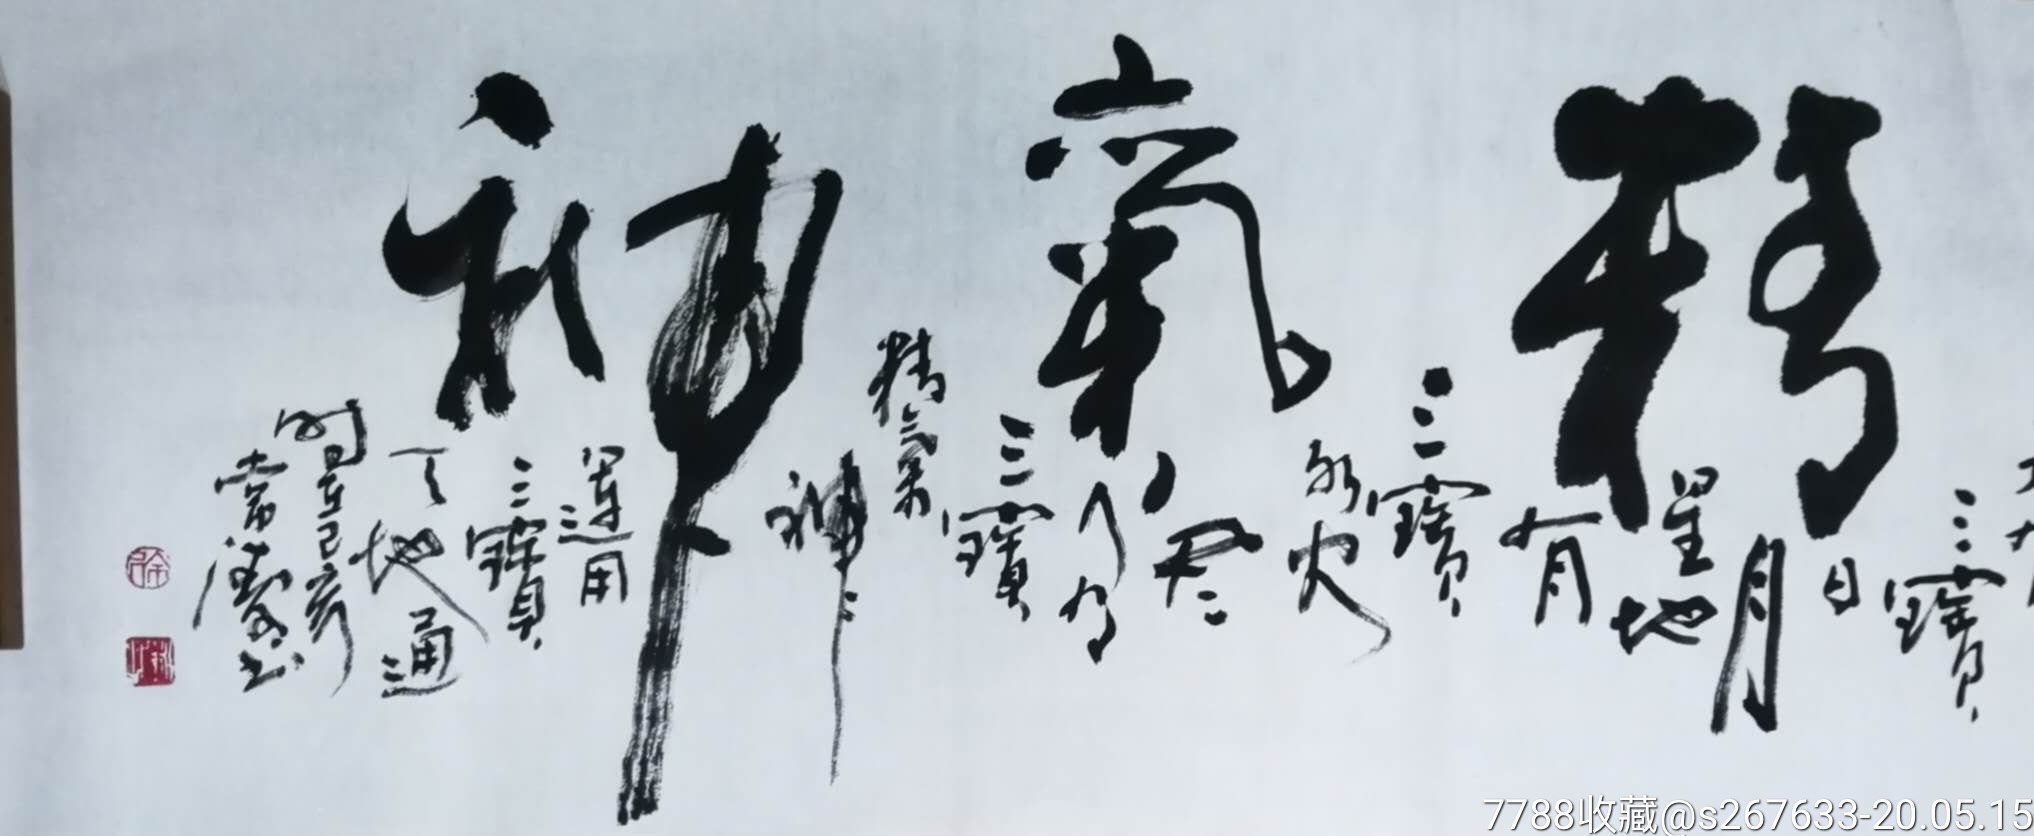 精氣神
三寶
日
月
星地
有
三寶
水火
人有
三寶
精氣
神
運用
三寶
天地通
時在己亥
書
徐
7788收藏@s267633-20.05.15